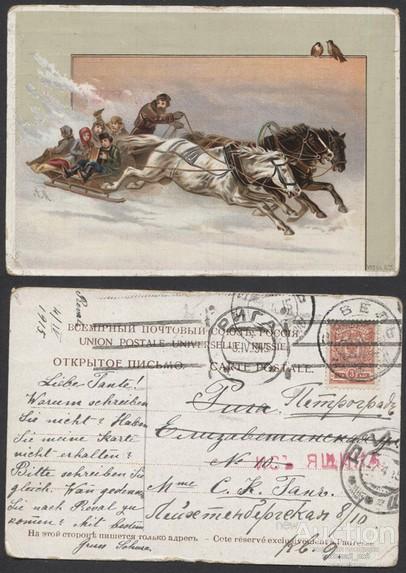 Reval
4/IV
1915
ВСЕМІРНЫЙ ПОЧТОВЫЙ СОЮЗЪ. РОССІЯ.
UNION POSTALE UNIVERSELLE. RUSSIE.
ОТКРЫТОЕ ПИСЬМО. CARTE POSTALE.
РИГА
5.IV.1915
РЕВЕЛ
Liebe Tante!
Warum schreiben
Sie nicht? Haben
Sie meine Karte
nicht erhalten?
Bitte schreiben Sie
gleich. Wan gedenken
Sie nach Reval zu
kommen? Mit besten
Gruss
Рига Петроград
Елизаветинская
№
ИСЪ ЯЩИКА
Mme С. К. Ганъ.
Лейхтенбергская 8/10
кв. 9
На этой сторонѣ пишется только адресъ. — Côté réservé exclusivement à l'adresse.